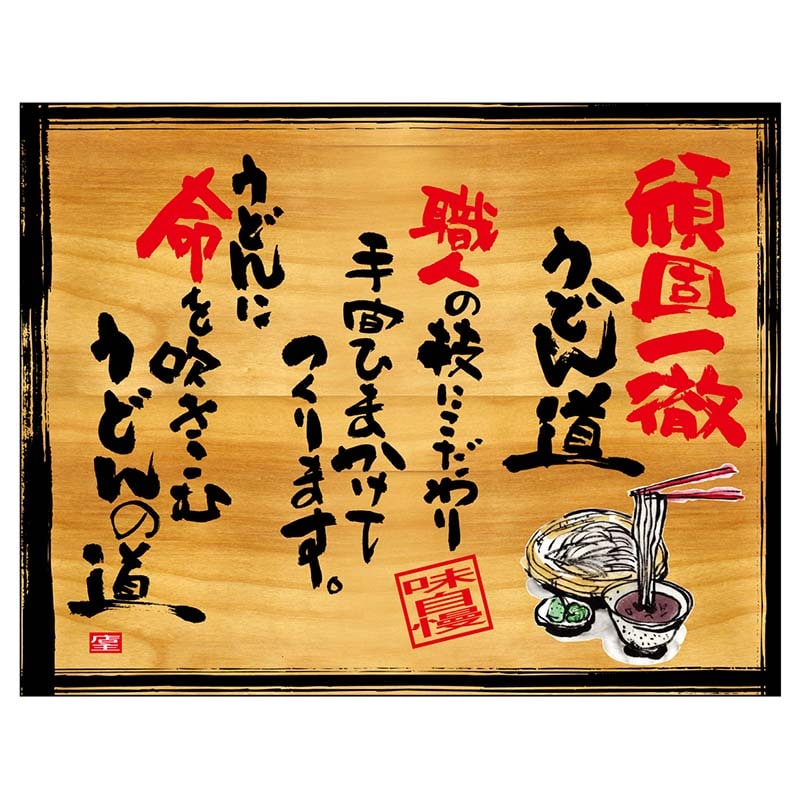 頑固一徹
うどん道
職人の技にこだわり
手間ひまかけて
つくります。
うどんに
命を吹きこむ
うどんの道
味自慢
店主